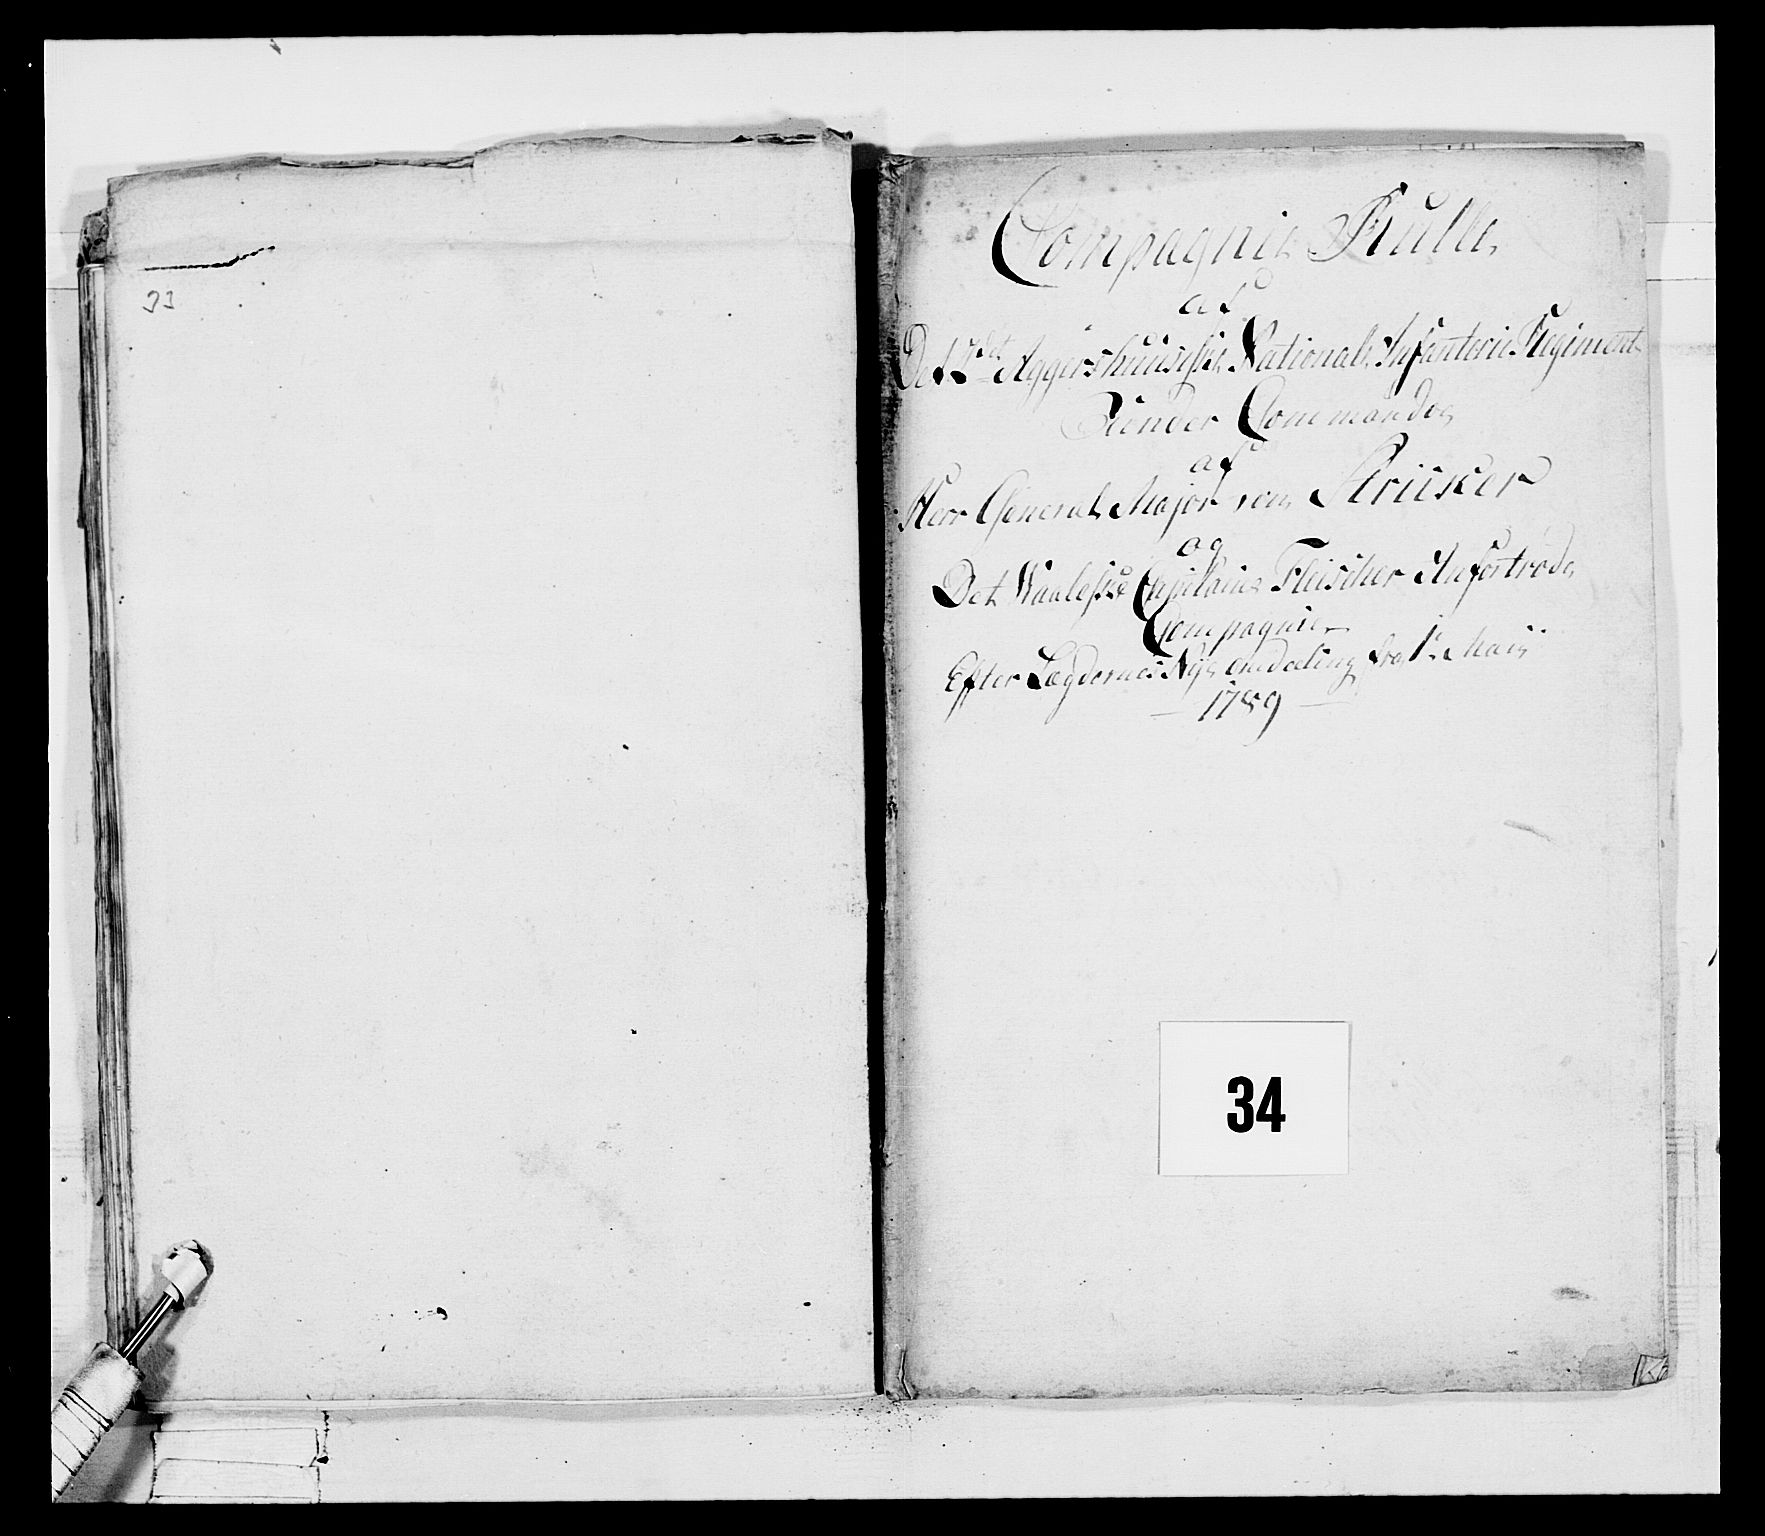 33
Compagnie Rulle
af
Det 2det Aggershuusiske Nationale Infanterie Regiment
Under Commando
af
Herr General Major von Stricker
og
Det Waalerske Capitaine Fleischer Anfortrode
Compagnie
Efter Lægdernes Nye omdeling fra 1te Maii
1789
34